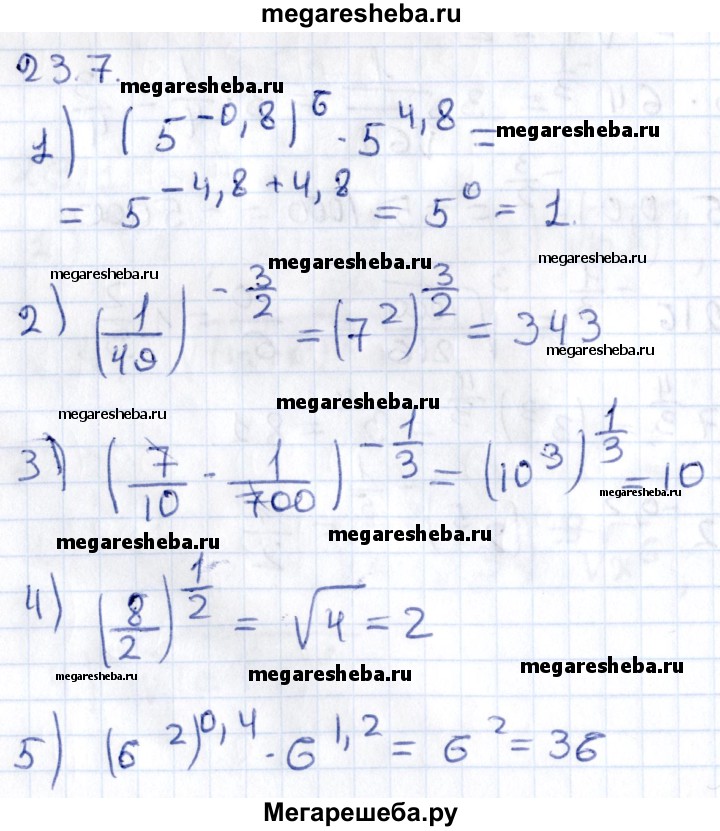 megaresheba.ru
23.7.
megaresheba.ru
1) (5^{-0,8})^6 · 5^{4,8} =
megaresheba.ru
= 5^{-4,8+4,8} = 5^0 = 1.
megaresheba.ru
megaresheba.ru
megaresheba.ru
2) (1/49)^{-3/2} = (7^2)^{3/2} = 343
megaresheba.ru
megaresheba.ru
megaresheba.ru
3) (7/10 · 1/700)^{-1/3} = (10^3)^{1/3} = 10
megaresheba.ru
megaresheba.ru
megaresheba.ru
4) (8/2)^{1/2} = √4 = 2
megaresheba.ru
megaresheba.ru
megaresheba.ru
5) (6^2)^{0,4} · 6^{1,2} = 6^2 = 36
Мегарешеба.ру